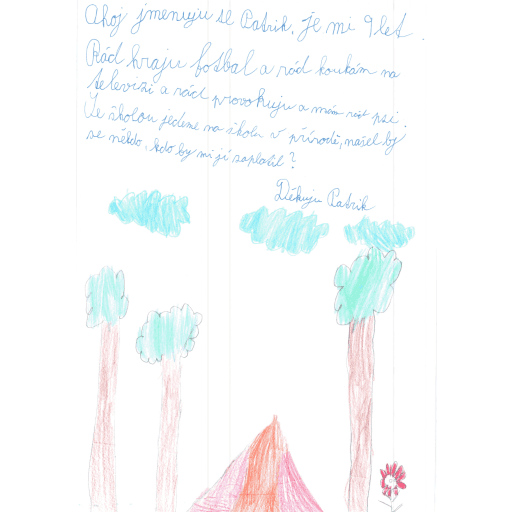 Ahoj jmenuju se Patrik. Je mi 9 let.
Rád hraju fotbal a rád koukám na
televizi a rád provokuju a mám rád psi.
Se školou jedeme na školu v přírodě, našel by
se někdo, kdo by mi ji zaplatil?
Děkuju Patrik